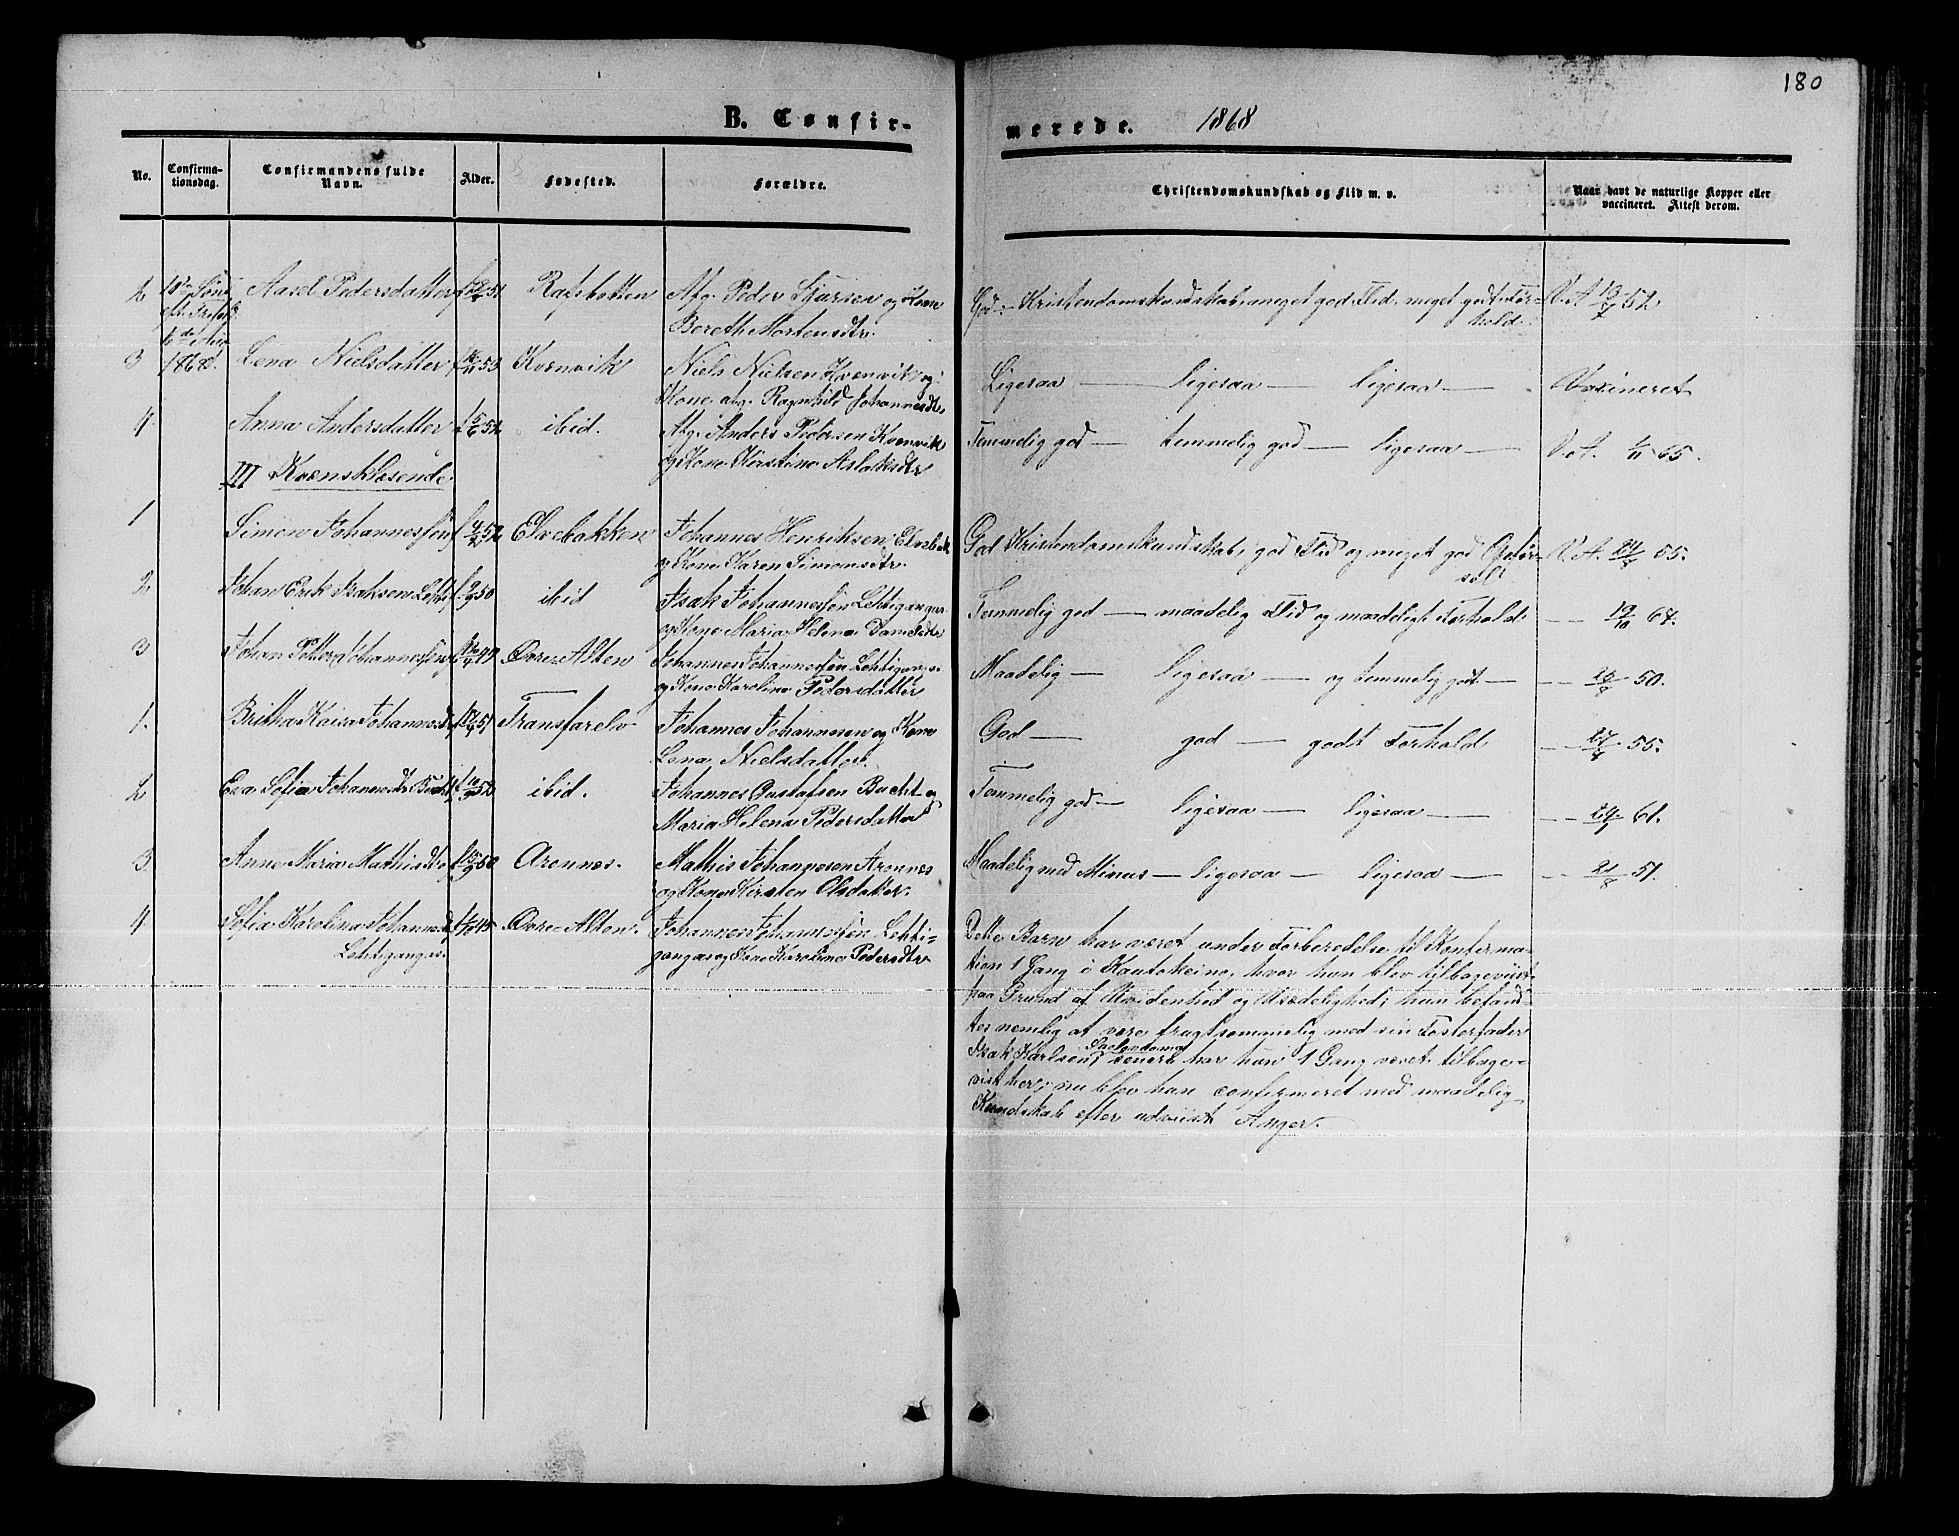 180
B. Confirmerede. 1868
No.
Confirma-
tionsdag.
Confirmandens fulde
Navn.
Alder.
Fødested.
Forældre.
Christendomskundskab og Flid m. v.
Naar havt de naturlige Kopper eller
vaccineret. Attest derom.
2 Aasel Pedersdatter Rafsbotten Afg. Peder Sjursen og Kone
Bereth Mortensdtr.
God Kristendomskundskab, meget god Flid, meget godt For-
hold.
V. A 52
3 1868. Lena Nielsdatter 53 Kvenvik Niels Nielsen Kvenvik og
Kone afg. Ragnhild Johannesdtr
Ligesaa — ligesaa — ligesaa — Vaxineret
4 Anna Andersdatter 52 ibid. Afg. Anders Pedersen Kvenvik
og Kone Kirstine Aslaksdtr
Temmelig god — temmelig god — ligesaa — V. A. 65.
III Kvænsklæsende.
1 Simon Johannessøn 52 Elvebakken Johannes Henriksen Elvebak
og Kone Karen Simonsdtr.
God Kristendomskundskab, god Flid og meget god Opfør-
sel
V. A. 55.
2 Johan Erik Isaksen 50 ibid Isak Johannessøn Lehtigangas
og Kone Maria Helena
Temmelig god — maadelig Flid og maadeligt Forhold. — 19/10 67.
3 Johan Petter Johannessøn 49 Øvre-Alten Johannes Johannessøn Lehtigangas
og Kone Karolina Pedersdatter
Maadelig — ligesaa — og temmelig godt — 50.
1. Britha Kaisa Johannesd 51 Transfarelv Johannes Johannesen og Kone
Lena Nielsdatter.
God — god — godt Forhold — 55.
2 Eva Sofia Johannesdtr Bucht 52 ibid. Johannes Gustafsen Bucht og
Maria Helena Pedersdatter
Temmelig god — ligesaa — ligesaa — 61.
3 Anne Maria Mathisdtr 50 Aronnes. Mathis Johannesen Aronnes
og Kone Kirsten Olsdatter.
Maadelig med Minus — ligesaa — ligesaa — 21/8 51.
4 Sofia Karolina Johannesd 45 Øvre-Alten. Johannes Johannessøn Lehti-
Lehtigangas.
gangas og Kone Karolina Pedersdtr
Dette Barn har været under Forberedelse til Konfirma-
tion 1 Gang i Kautokeino, hvor hun blev tilbageviist
paa Grund af Uvidenhed og Usædelighed; hun befand-
tes nemlig at være frugtsommelig med sin Fosterfader
Isak Karlsen; senere har hun 1 Gang været tilbage-
vist her; nu blev hun confirmeret med maadelig
Kundskab efter udviist Anger.